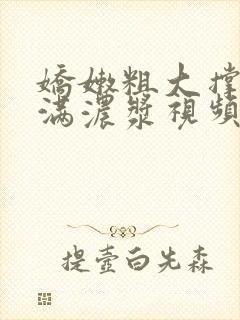 嬌嫩粗大撐
滿濃漿視頻
提壺白先森